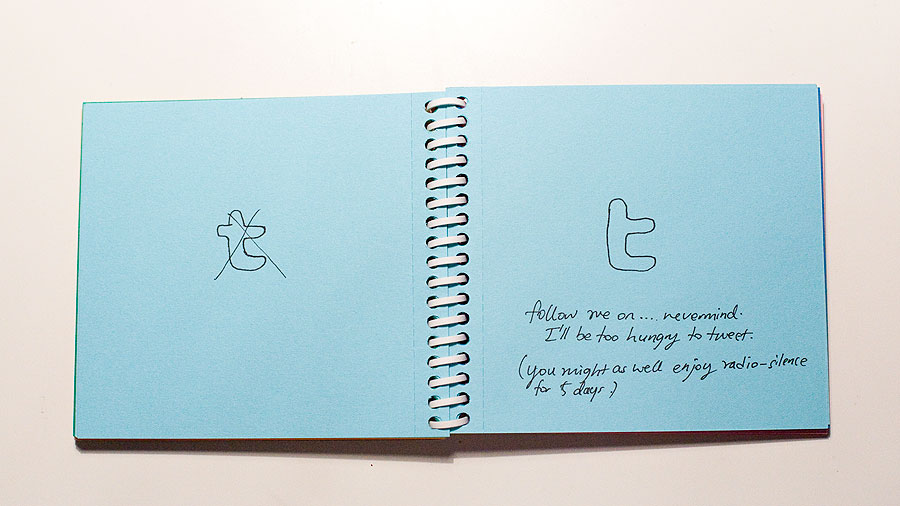 t
t
follow me on... nevermind.
I'll be too hungry to tweet.
(you might as well enjoy radio-silence
for 5 days)